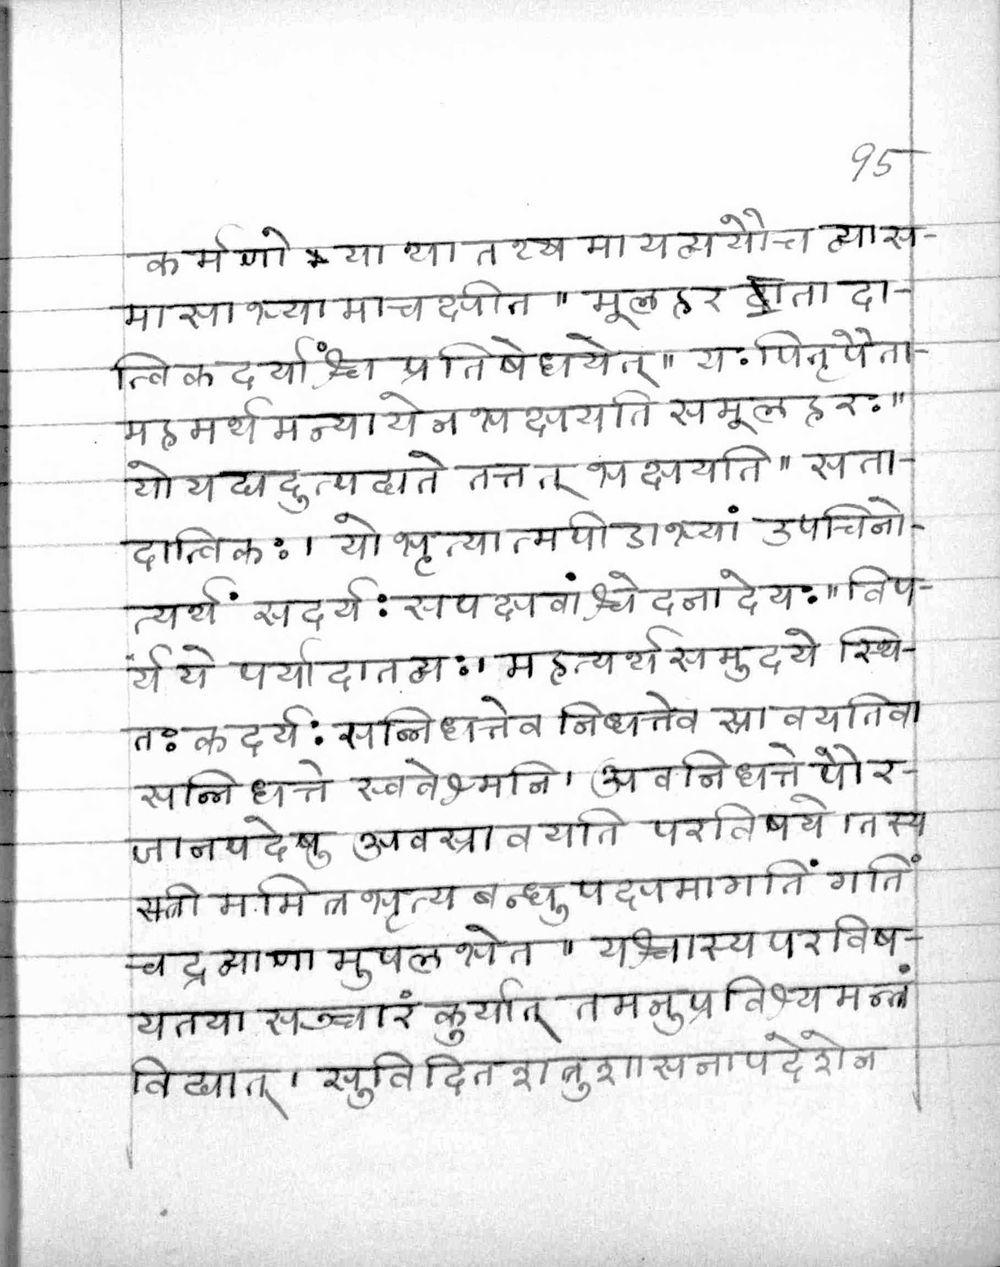 95
कर्मणो याथातथ्य मायव्ययौच व्यास-
मासाभ्यामाचक्षीत" मूलहर तादा-
त्विकदर्यांश्च प्रतिषेधयेत्" यः पितृपैता-
महमर्थमन्यायेन भक्षयति समूलहरः"
योयद्यदुत्पद्यते तत्तत् भक्षयति" सता-
दात्विकः। यो भृत्यात्मपीडाभ्यां उपचिनो-
त्यर्थं सदर्यः सपक्षवांश्चेदनादेयः" विप-
र्यये पर्यादातव्यः। महत्यर्थसमुदये स्थि-
तः कदर्यः सन्निधत्तेव निधत्तेव स्रावयतिवा
सन्निधत्ते स्ववेश्मनि। अवनिधत्ते पौर-
जानपदेषु अवस्रावयति परविषये। तस्य
सत्री ममित्र भृत्य बन्धुपक्षमागतिं गतिं
चद्रव्याणामुपलभेत" यश्चास्य परविष-
यतया सञ्चारं कुर्यात् तमनुप्रविश्यमन्त्रं
विद्यात्। सुविदित शत्रुशासनापदेशेन